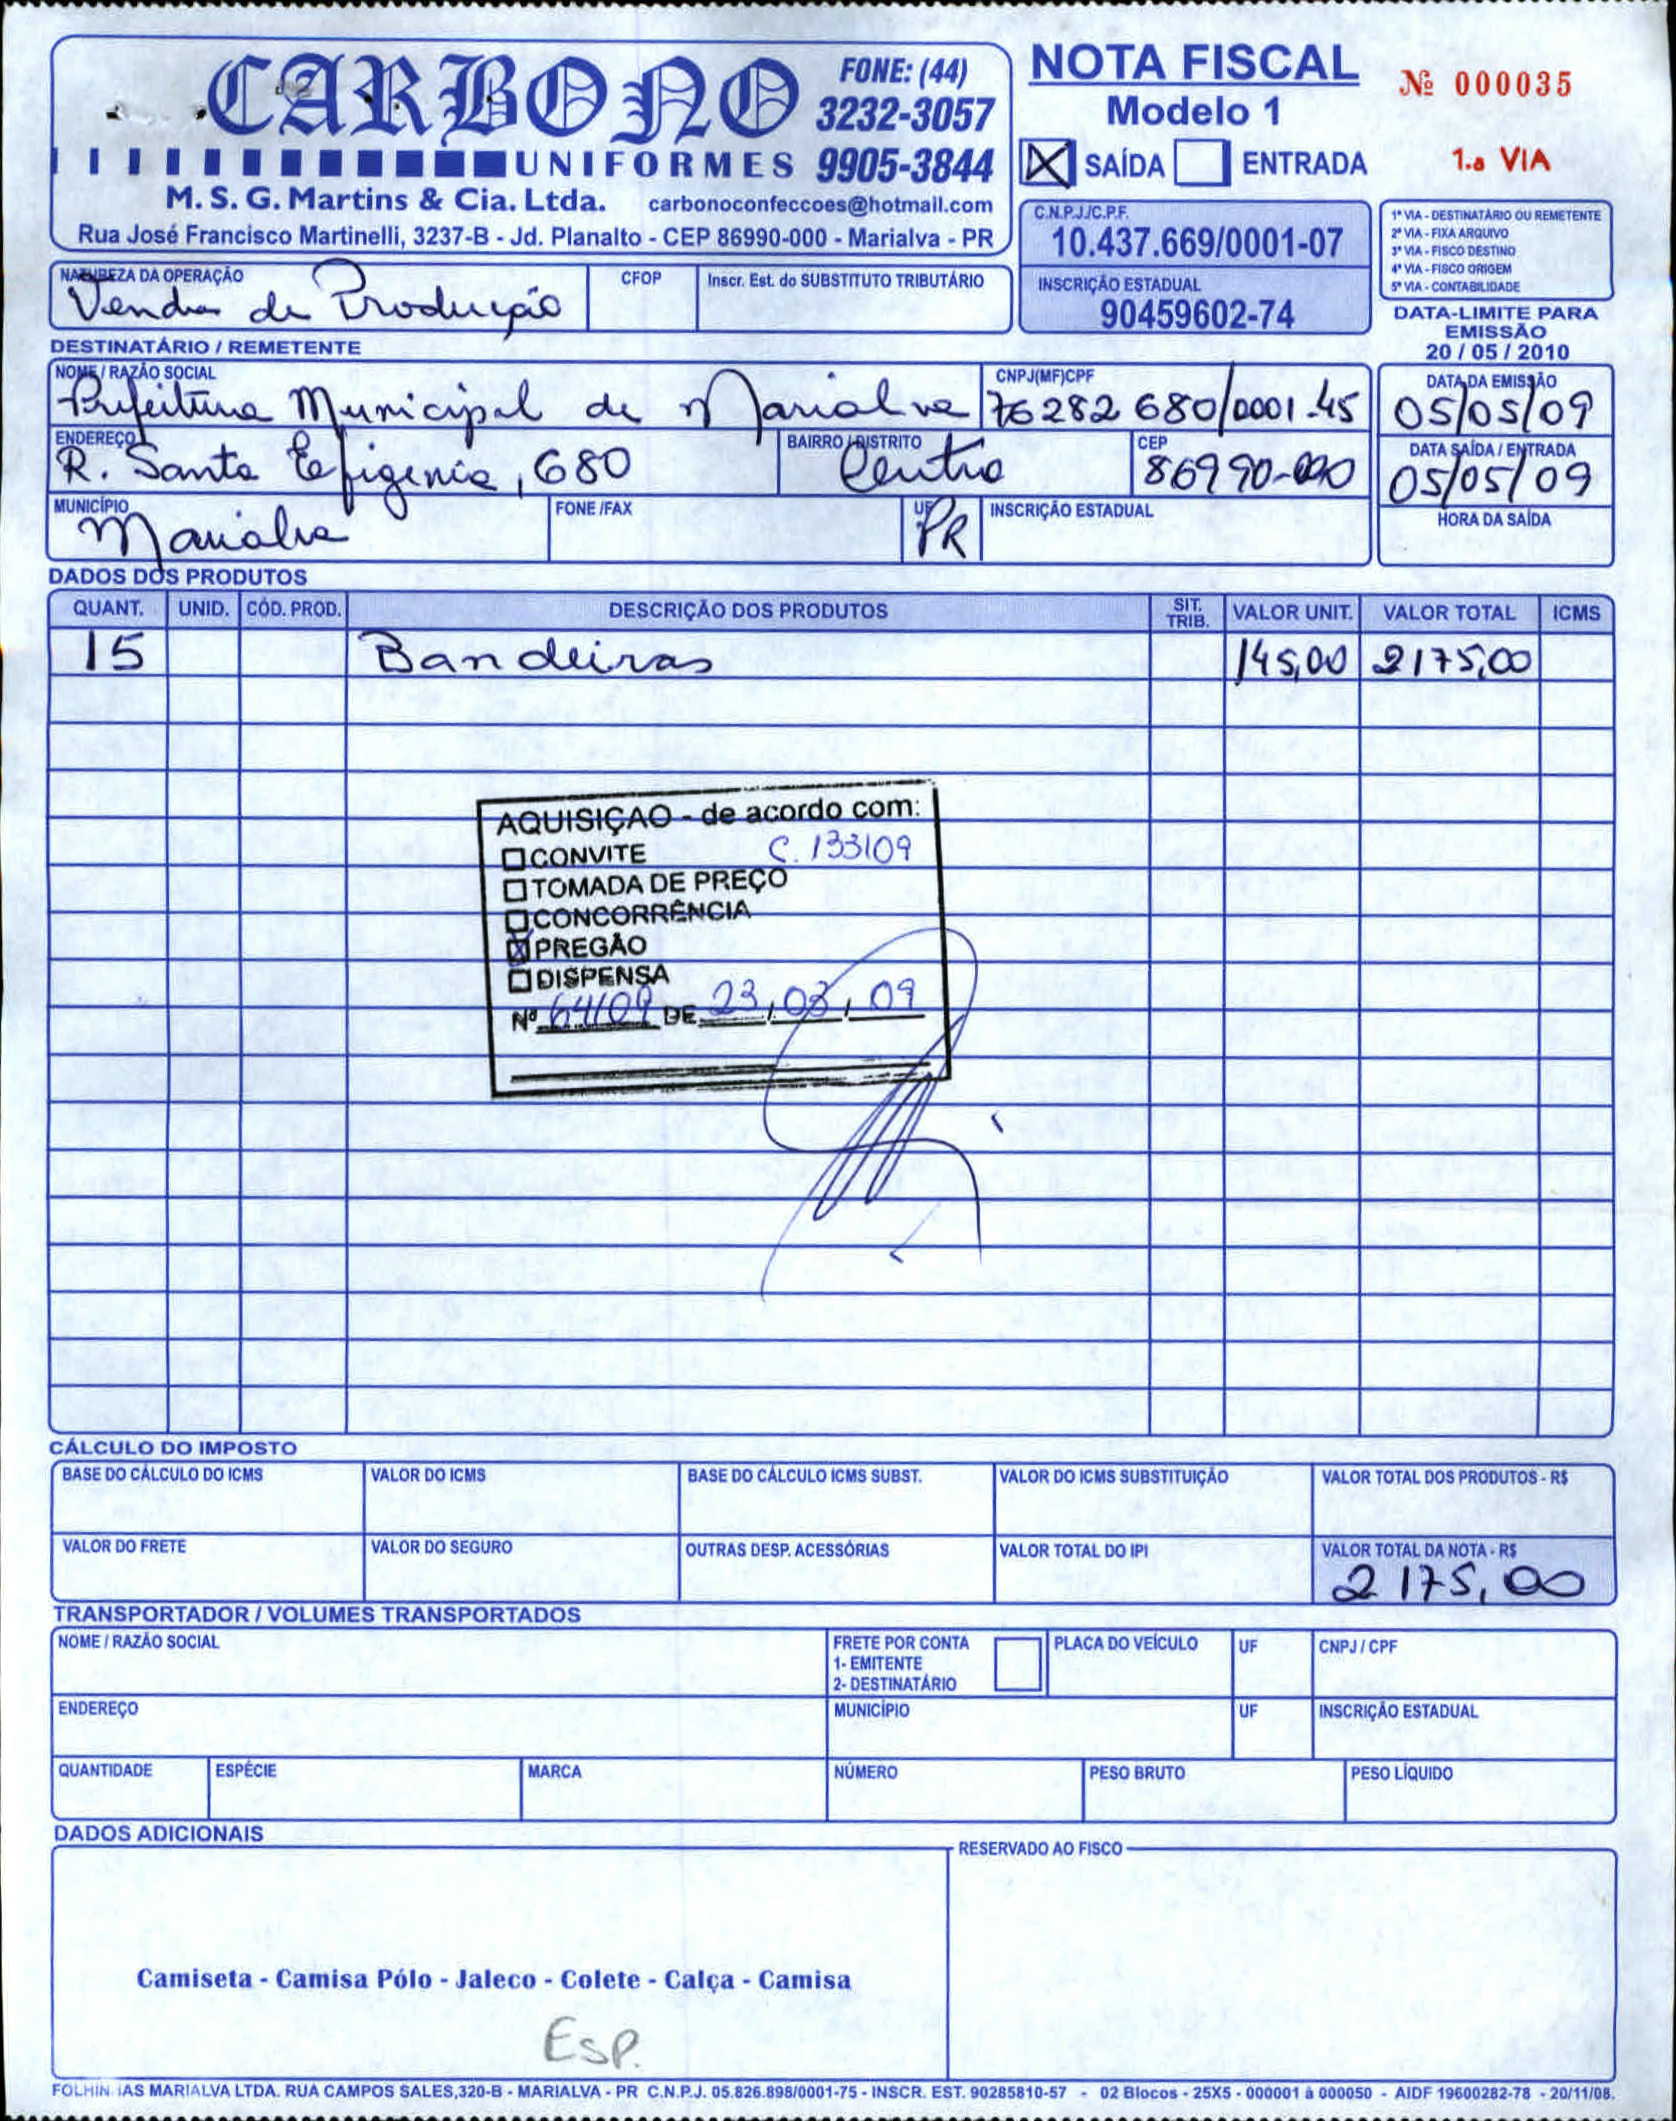 CARBONO
UNIFORMES
FONE: (44)
3232-3057
9905-3844
M. S. G. Martins & Cia. Ltda. carbonoconfeccoes@hotmail.com
Rua José Francisco Martinelli, 3237-B - Jd. Planalto - CEP 86990-000 - Marialva - PR
NOTA FISCAL
Modelo 1
X SAÍDA ENTRADA
Nº 000035
1.a VIA
C.N.P.J./C.P.F.
10.437.669/0001-07
INSCRIÇÃO ESTADUAL
90459602-74
1ª VIA - DESTINATÁRIO OU REMETENTE
2ª VIA - FIXA ARQUIVO
3ª VIA - FISCO DESTINO
4ª VIA - FISCO ORIGEM
5ª VIA - CONTABILIDADE
DATA-LIMITE PARA
EMISSÃO
20 / 05 / 2010
NATUREZA DA OPERAÇÃO CFOP Inscr. Est. do SUBSTITUTO TRIBUTÁRIO
Venda de Produção
DESTINATÁRIO / REMETENTE
NOME / RAZÃO SOCIAL CNPJ(MF)CPF DATA DA EMISSÃO
Prefeitura Municipal de Marialva 76282680/0001-45 05/05/09
ENDEREÇO BAIRRO / DISTRITO CEP DATA SAÍDA / ENTRADA
R. Santa Efigenia, 680 Centro 86990-000 05/05/09
MUNICÍPIO FONE /FAX UF INSCRIÇÃO ESTADUAL HORA DA SAÍDA
Marialva PR
DADOS DOS PRODUTOS
QUANT. UNID. CÓD. PROD. DESCRIÇÃO DOS PRODUTOS SIT. TRIB. VALOR UNIT. VALOR TOTAL ICMS
15 Bandeiras 145,00 2175,00
AQUISIÇAO - de acordo com:
CONVITE C. 133/09
TOMADA DE PREÇO
CONCORRÊNCIA
X PREGÃO
DISPENSA
Nº 64/09 DE 23/03/09
CÁLCULO DO IMPOSTO
BASE DO CÁLCULO DO ICMS VALOR DO ICMS BASE DO CÁLCULO ICMS SUBST. VALOR DO ICMS SUBSTITUIÇÃO VALOR TOTAL DOS PRODUTOS - R$
VALOR DO FRETE VALOR DO SEGURO OUTRAS DESP. ACESSÓRIAS VALOR TOTAL DO IPI VALOR TOTAL DA NOTA - R$
2175,00
TRANSPORTADOR / VOLUMES TRANSPORTADOS
NOME / RAZÃO SOCIAL FRETE POR CONTA PLACA DO VEÍCULO UF CNPJ / CPF
1- EMITENTE
2- DESTINATÁRIO
ENDEREÇO MUNICÍPIO UF INSCRIÇÃO ESTADUAL
QUANTIDADE ESPÉCIE MARCA NÚMERO PESO BRUTO PESO LÍQUIDO
DADOS ADICIONAIS
RESERVADO AO FISCO
Camiseta - Camisa Pólo - Jaleco - Colete - Calça - Camisa
Esp.
MARIALVA LTDA. RUA CAMPOS SALES,320-B - MARIALVA - PR C.N.P.J. 05.826.898/0001-75 - INSCR. EST. 90285810-57 - 02 Blocos - 25X5 - 000001 à 000050 - AIDF 19600282-78 - 20/11/08.